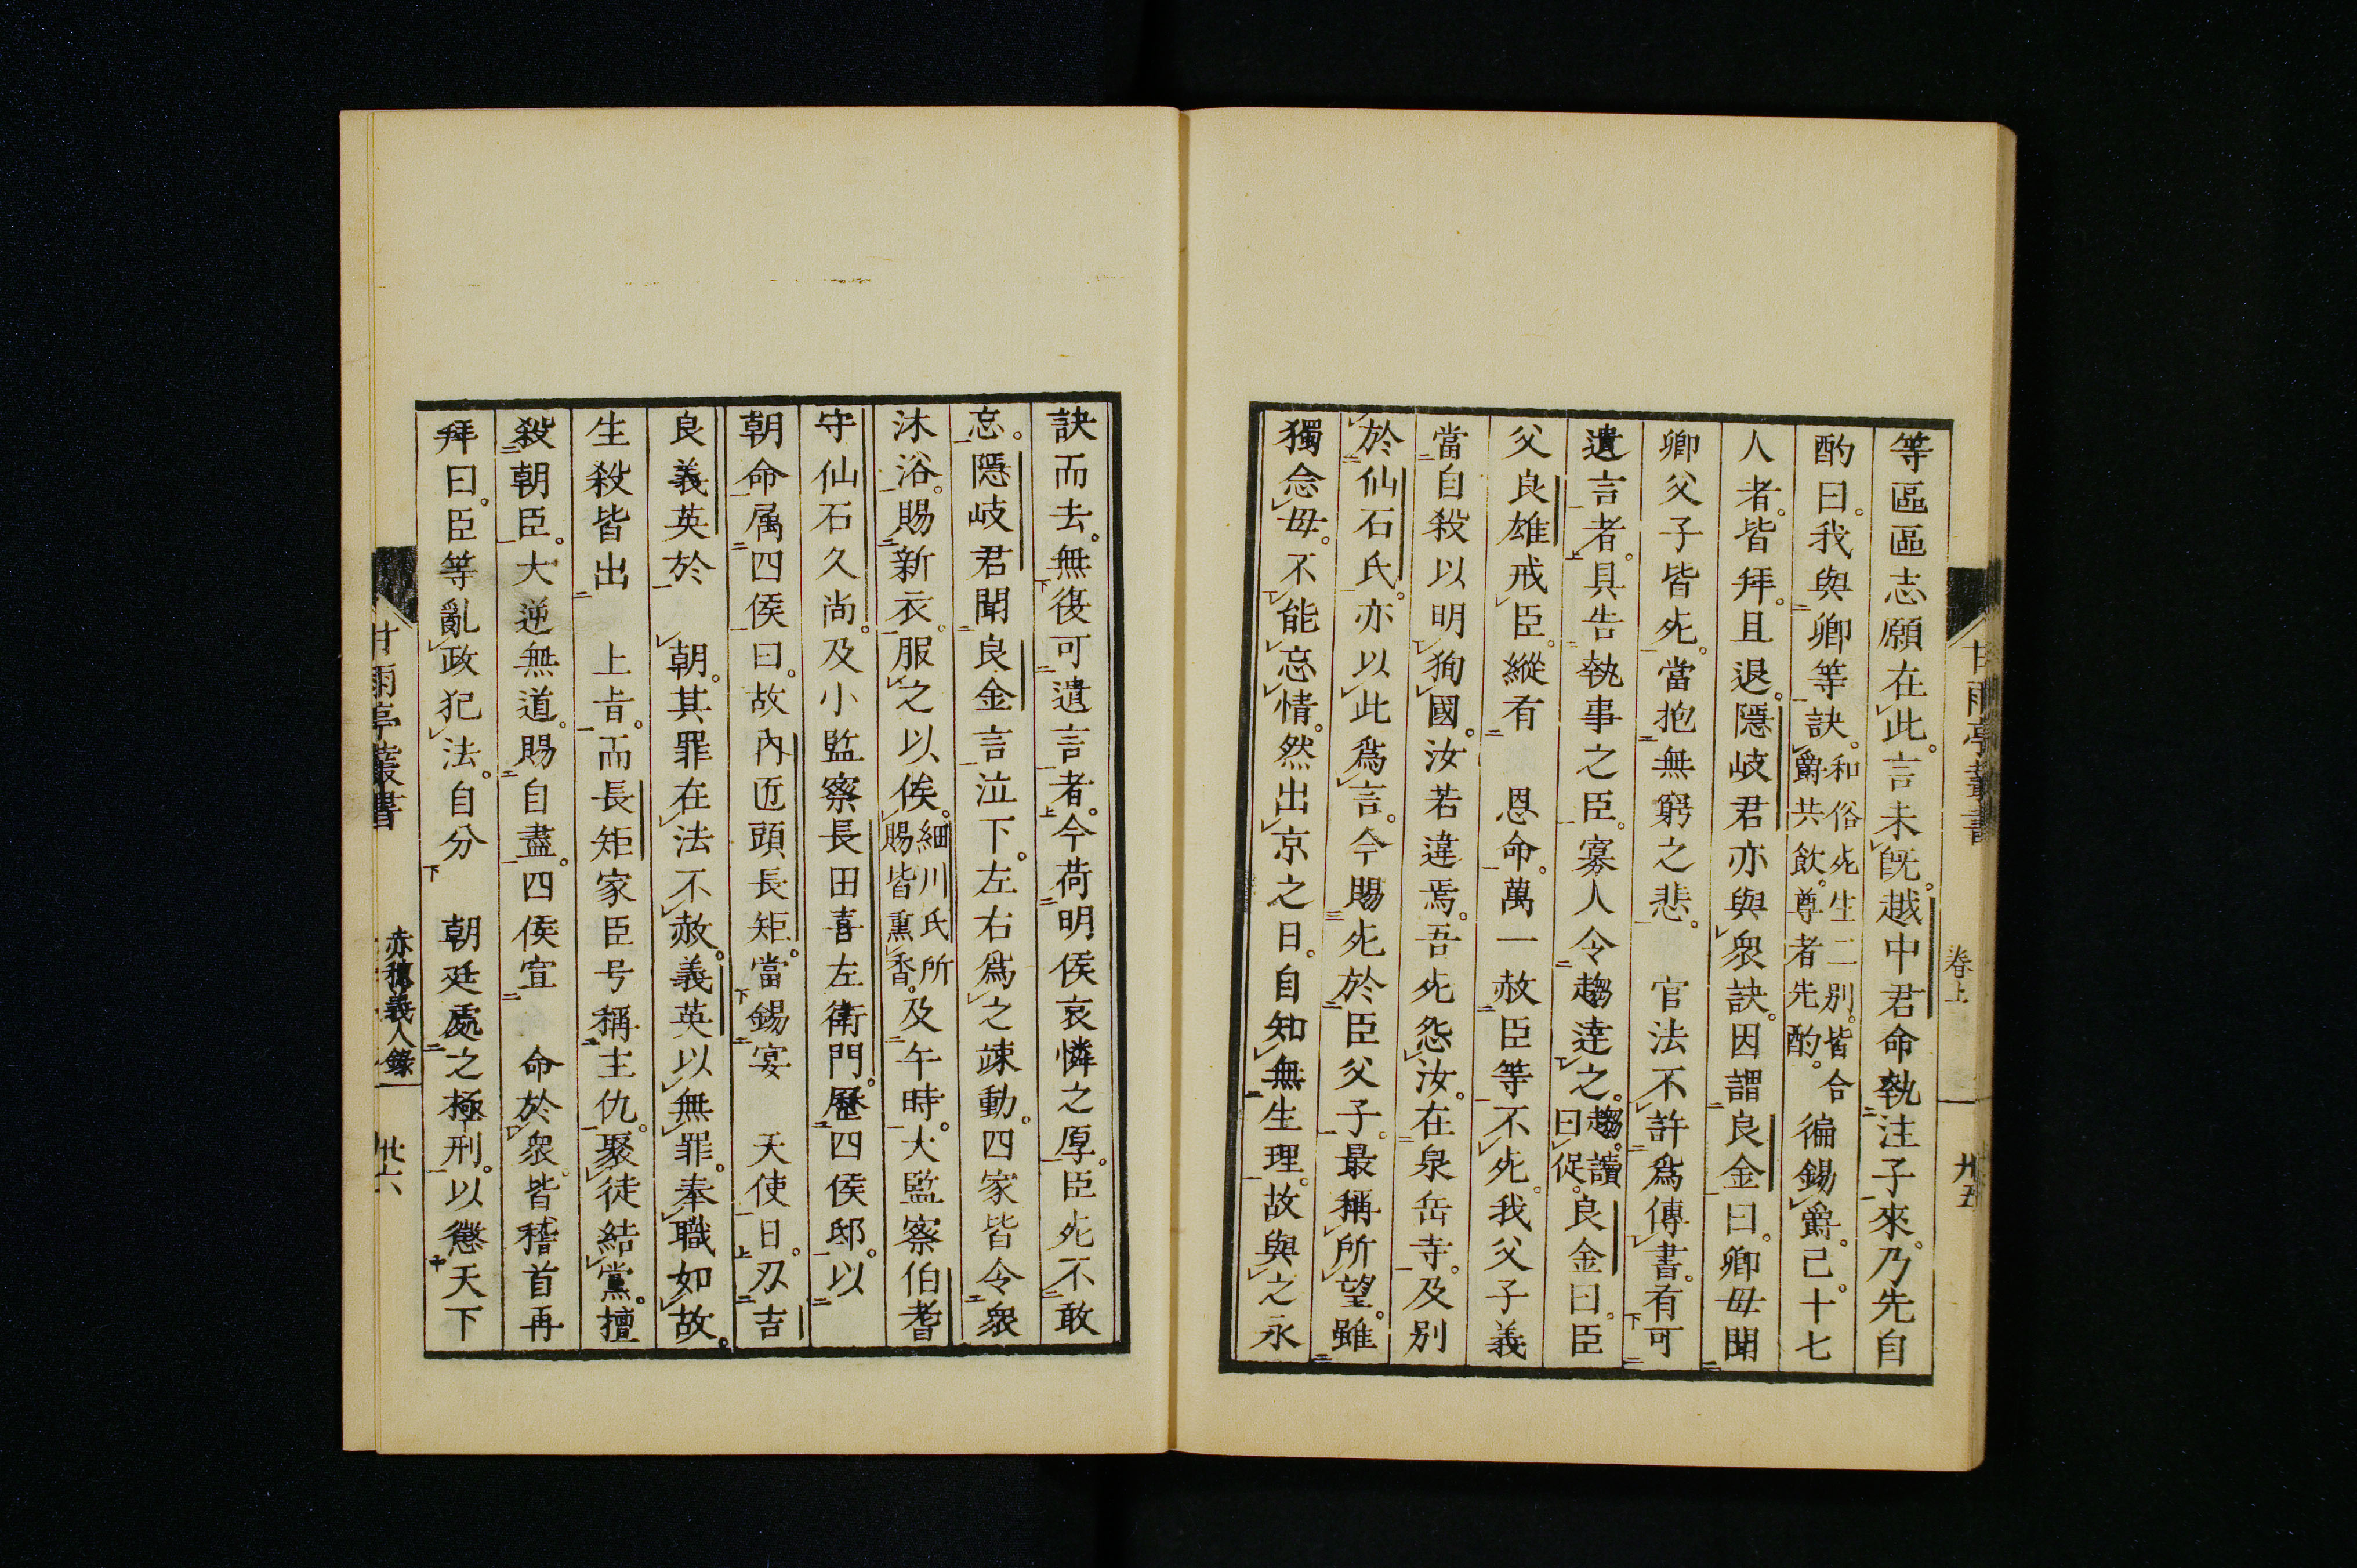 甘雨亭叢書 卷上 廿五
等區區志願在此。言未既。越中君命執注子來。乃先自
酌曰。我與卿等訣。和俗死生二別。皆合爵共飲。尊者先酌。徧錫爵。已。十七
人者。皆拜。且退。隱岐君亦與衆訣。因謂良金曰。卿母聞
卿父子皆死。當抱無窮之悲。 官法不許爲傳書。有可
遺言者。具告執事之臣。寡人令趨達之。趨。讀曰促。良金曰。臣
父良雄戒臣。縱有 恩命。萬一赦臣等不死。我父子義
當自殺以明狥國。汝若違焉。吾死怨汝。在泉岳寺。及別
於仙石氏。亦以此爲言。今賜死於臣父子。最稱所望。雖
獨念母。不能忘情。然出京之日。自知無生理。故與之永
訣而去。無復可遺言者。今荷明侯哀憐之厚。臣死不敢
忘。隱岐君聞良金言泣下。左右爲之竦動。四家皆令衆
沐浴。賜新衣。服之以俟。細川氏所賜皆熏香。及午時。大監察伯耆
守仙石久尚。及小監察長田喜左衛門。歷四侯邸。以
朝命属四侯曰。故內匠頭長矩。當錫宴 天使日。刃吉
良義英於 朝。其罪在法不赦。義英以無罪。奉職如故。
生殺皆出 上旨。而長矩家臣号稱主仇。聚徒結黨。擅
殺朝臣。大逆無道。賜自盡。四侯宣 命於衆。皆稽首再
拜曰。臣等亂政犯法。自分 朝廷處之極刑。以懲天下
甘雨亭叢書 赤穗義人錄 廿六